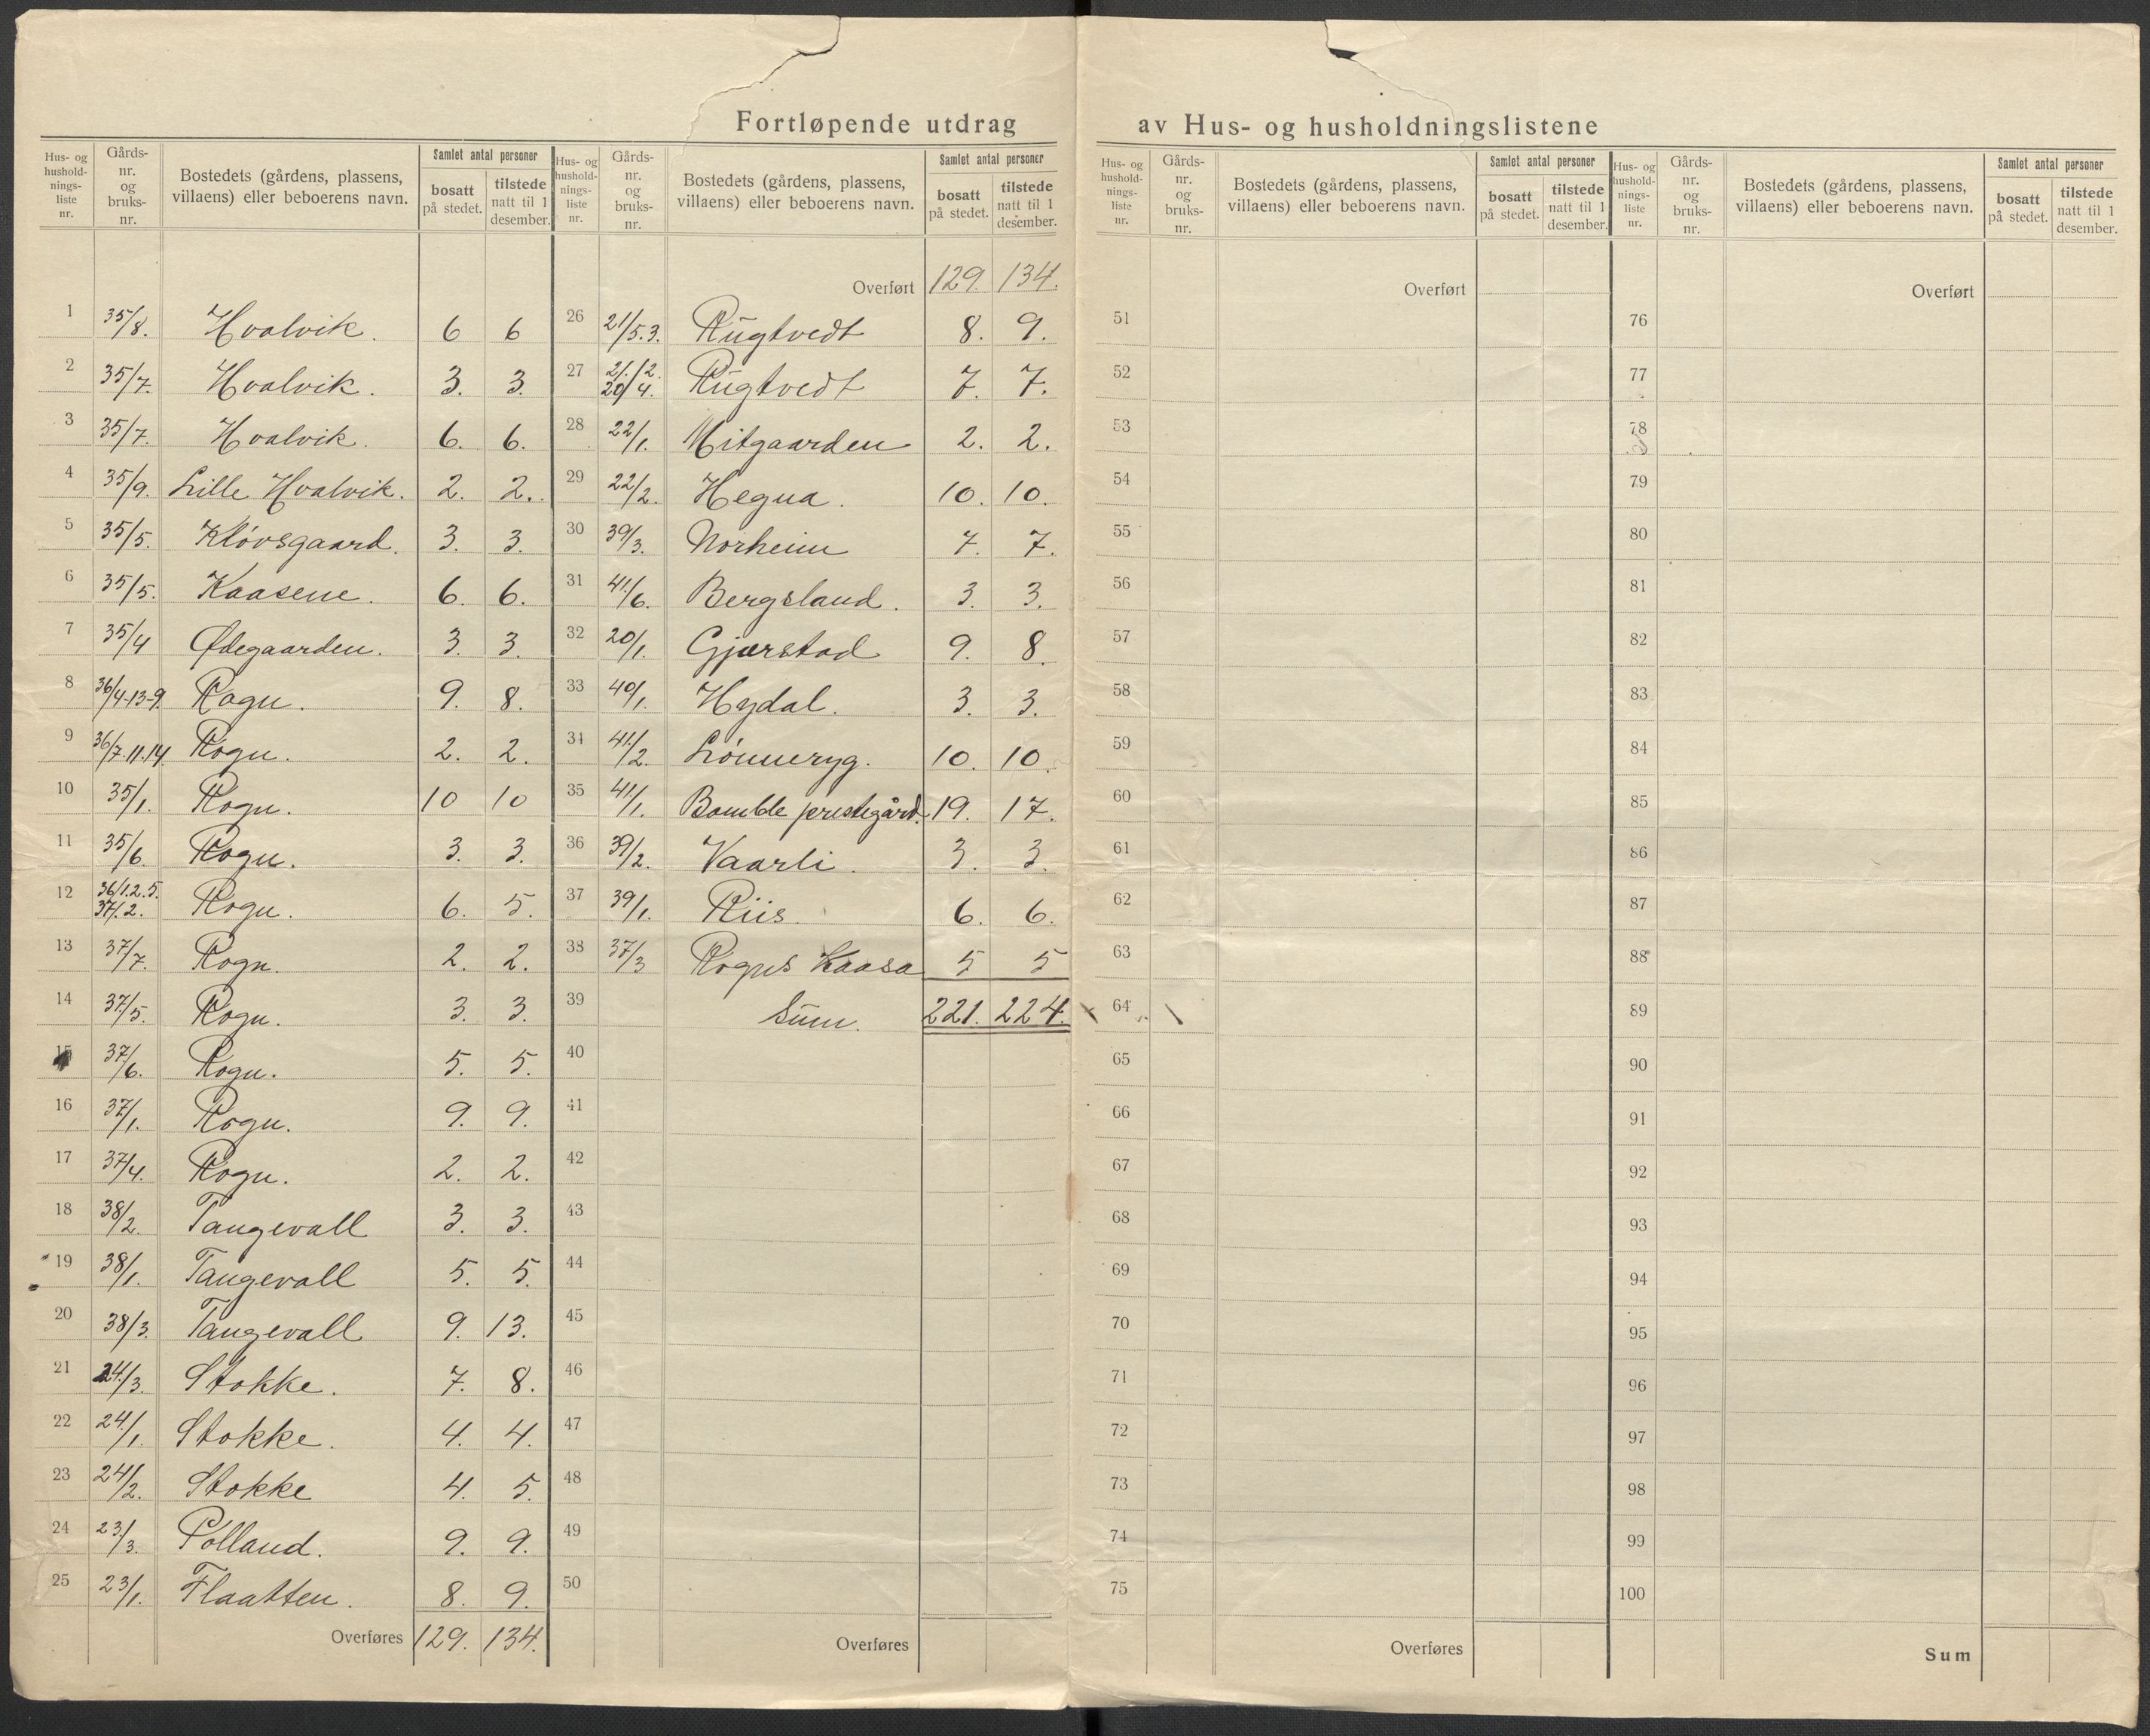 Fortløpende utdrag av Hus- og husholdningslistene
Hus- og hushold-nings-liste nr. | Gårds-nr. og bruks-nr. | Bostedets (gårdens, plassens, villaens) eller beboerens navn. | Samlet antal personer | bosatt på stedet. | tilstede natt til 1 desember.
1 35/8. Hvalvik. 6 6
2 35/7. Hvalvik. 3. 3.
3 35/7. Hvalvik. 6. 6.
4 35/9. Lille Hvalvik. 2. 2.
5 35/5. Kløvsgaard. 3. 3.
6 35/5. Kaasene. 6. 6.
7 35/4 Ødegaarden. 3. 3.
8 36/4-13-9. Rogn. 9. 8.
9 36/7.11.14. Rogn. 2. 2.
10 35/1. Rogn. 10 10
11 35/6 Rogn. 3. 3.
12 36/1.2.5. 37/2. Rogn. 6. 5.
13 37/7. Rogn. 2. 2.
14 37/5. Rogn. 3. 3.
15 37/6. Rogn. 5. 5.
16 37/1. Rogn. 9. 9.
17 37/4. Rogn. 2. 2.
18 38/2. Tangevall 3. 3.
19 38/1. Tangevall 5. 5.
20 38/3. Tangevall 9. 13.
21 24/3. Stokke. 7. 8.
22 24/1. Stokke. 4. 4.
23 24/2. Stokke 4. 5.
24 23/3. Polland. 9. 9.
25 23/1. Flaatten. 8. 9.
Overføres 129. 134.
Hus- og hushold-nings-liste nr. | Gårds-nr. og bruks-nr. | Bostedets (gårdens, plassens, villaens) eller beboerens navn. | Samlet antal personer | bosatt på stedet. | tilstede natt til 1 desember.
Overført 129. 134.
26 21/5.3. Rugtvedt 8. 9.
27 21/2. 20/4. Rugtvedt 7. 7.
28 22/1. Mitgaarden 2. 2.
29 22/2. Hegna. 10. 10.
30 39/3. Norheim 7. 7.
31 41/6. Bergsland. 3. 3.
32 20/1. Gjærstad 9. 8.
33 40/1. Hydal. 3. 3.
34 41/2. Lønneryg. 10. 10.
35 41/1. Bamble prestegård. 19. 17.
36 39/2. Vaarli. 3. 3.
37 39/1. Riis 6. 6.
38 37/3 Rogns Kaasa 5 5
39 Sum. 221. 224.
40
41
42
43
44
45
46
47
48
49
50
Overføres
Hus- og hushold-nings-liste nr. | Gårds-nr. og bruks-nr. | Bostedets (gårdens, plassens, villaens) eller beboerens navn. | Samlet antal personer | bosatt på stedet. | tilstede natt til 1 desember.
Overført
51
52
53
54
55
56
57
58
59
60
61
62
63
64
65
66
67
68
69
70
71
72
73
74
75
Overføres
Hus- og hushold-nings-liste nr. | Gårds-nr. og bruks-nr. | Bostedets (gårdens, plassens, villaens) eller beboerens navn. | Samlet antal personer | bosatt på stedet. | tilstede natt til 1 desember.
Overført
76
77
78
79
80
81
82
83
84
85
86
87
88
89
90
91
92
93
94
95
96
97
98
99
100
Sum